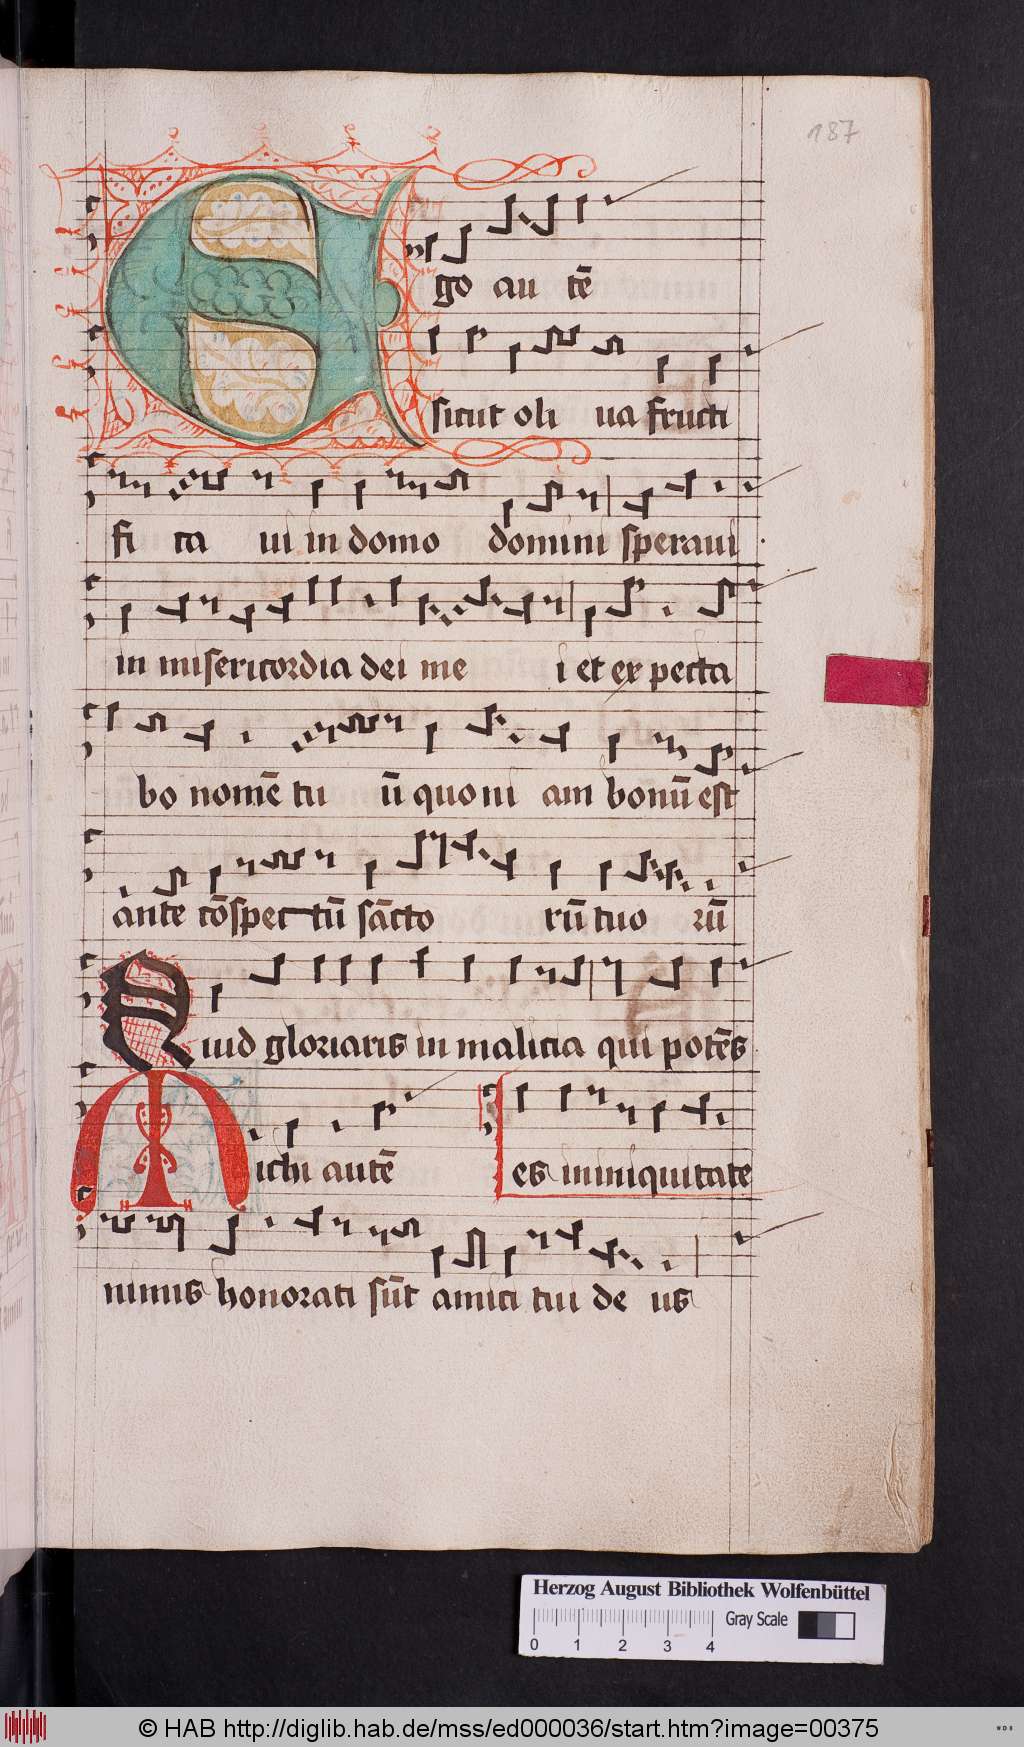 187
Ego au tē
sicut oli ua fructi
fi ca ui in domo domini speraui
in misericordia dei me i et expecta
bo nomē tu ū quoni am bonū est
ante cōspec tū sācto rū tuo rū
Quid gloriaris in malicia qui potēs
Michi autē es in iniquitate
nimis honorati sūt amici tui de us
Herzog August Bibliothek Wolfenbüttel
Gray Scale
0 1 2 3 4
© HAB http://diglib.hab.de/mss/ed000036/start.htm?image=00375
WDB